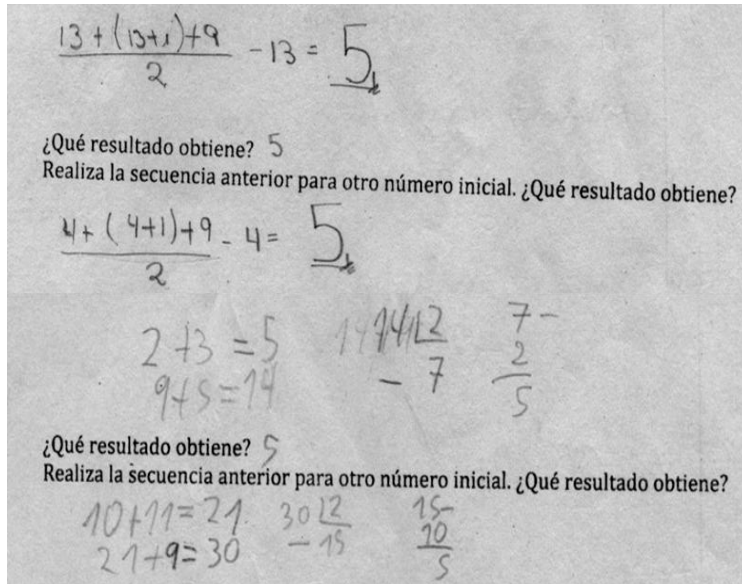 13 + (13+1)+9
2
- 13 = 5
¿Qué resultado obtiene? 5
Realiza la secuencia anterior para otro número inicial. ¿Qué resultado obtiene?
4+ (4+1)+9
2
- 4 = 5
2+3=5 14 2 7-
9+5=14 - 7 2
5
¿Qué resultado obtiene? 5
Realiza la secuencia anterior para otro número inicial. ¿Qué resultado obtiene?
10+11=21 30 2 15-
21+9=30 - 15 10
5